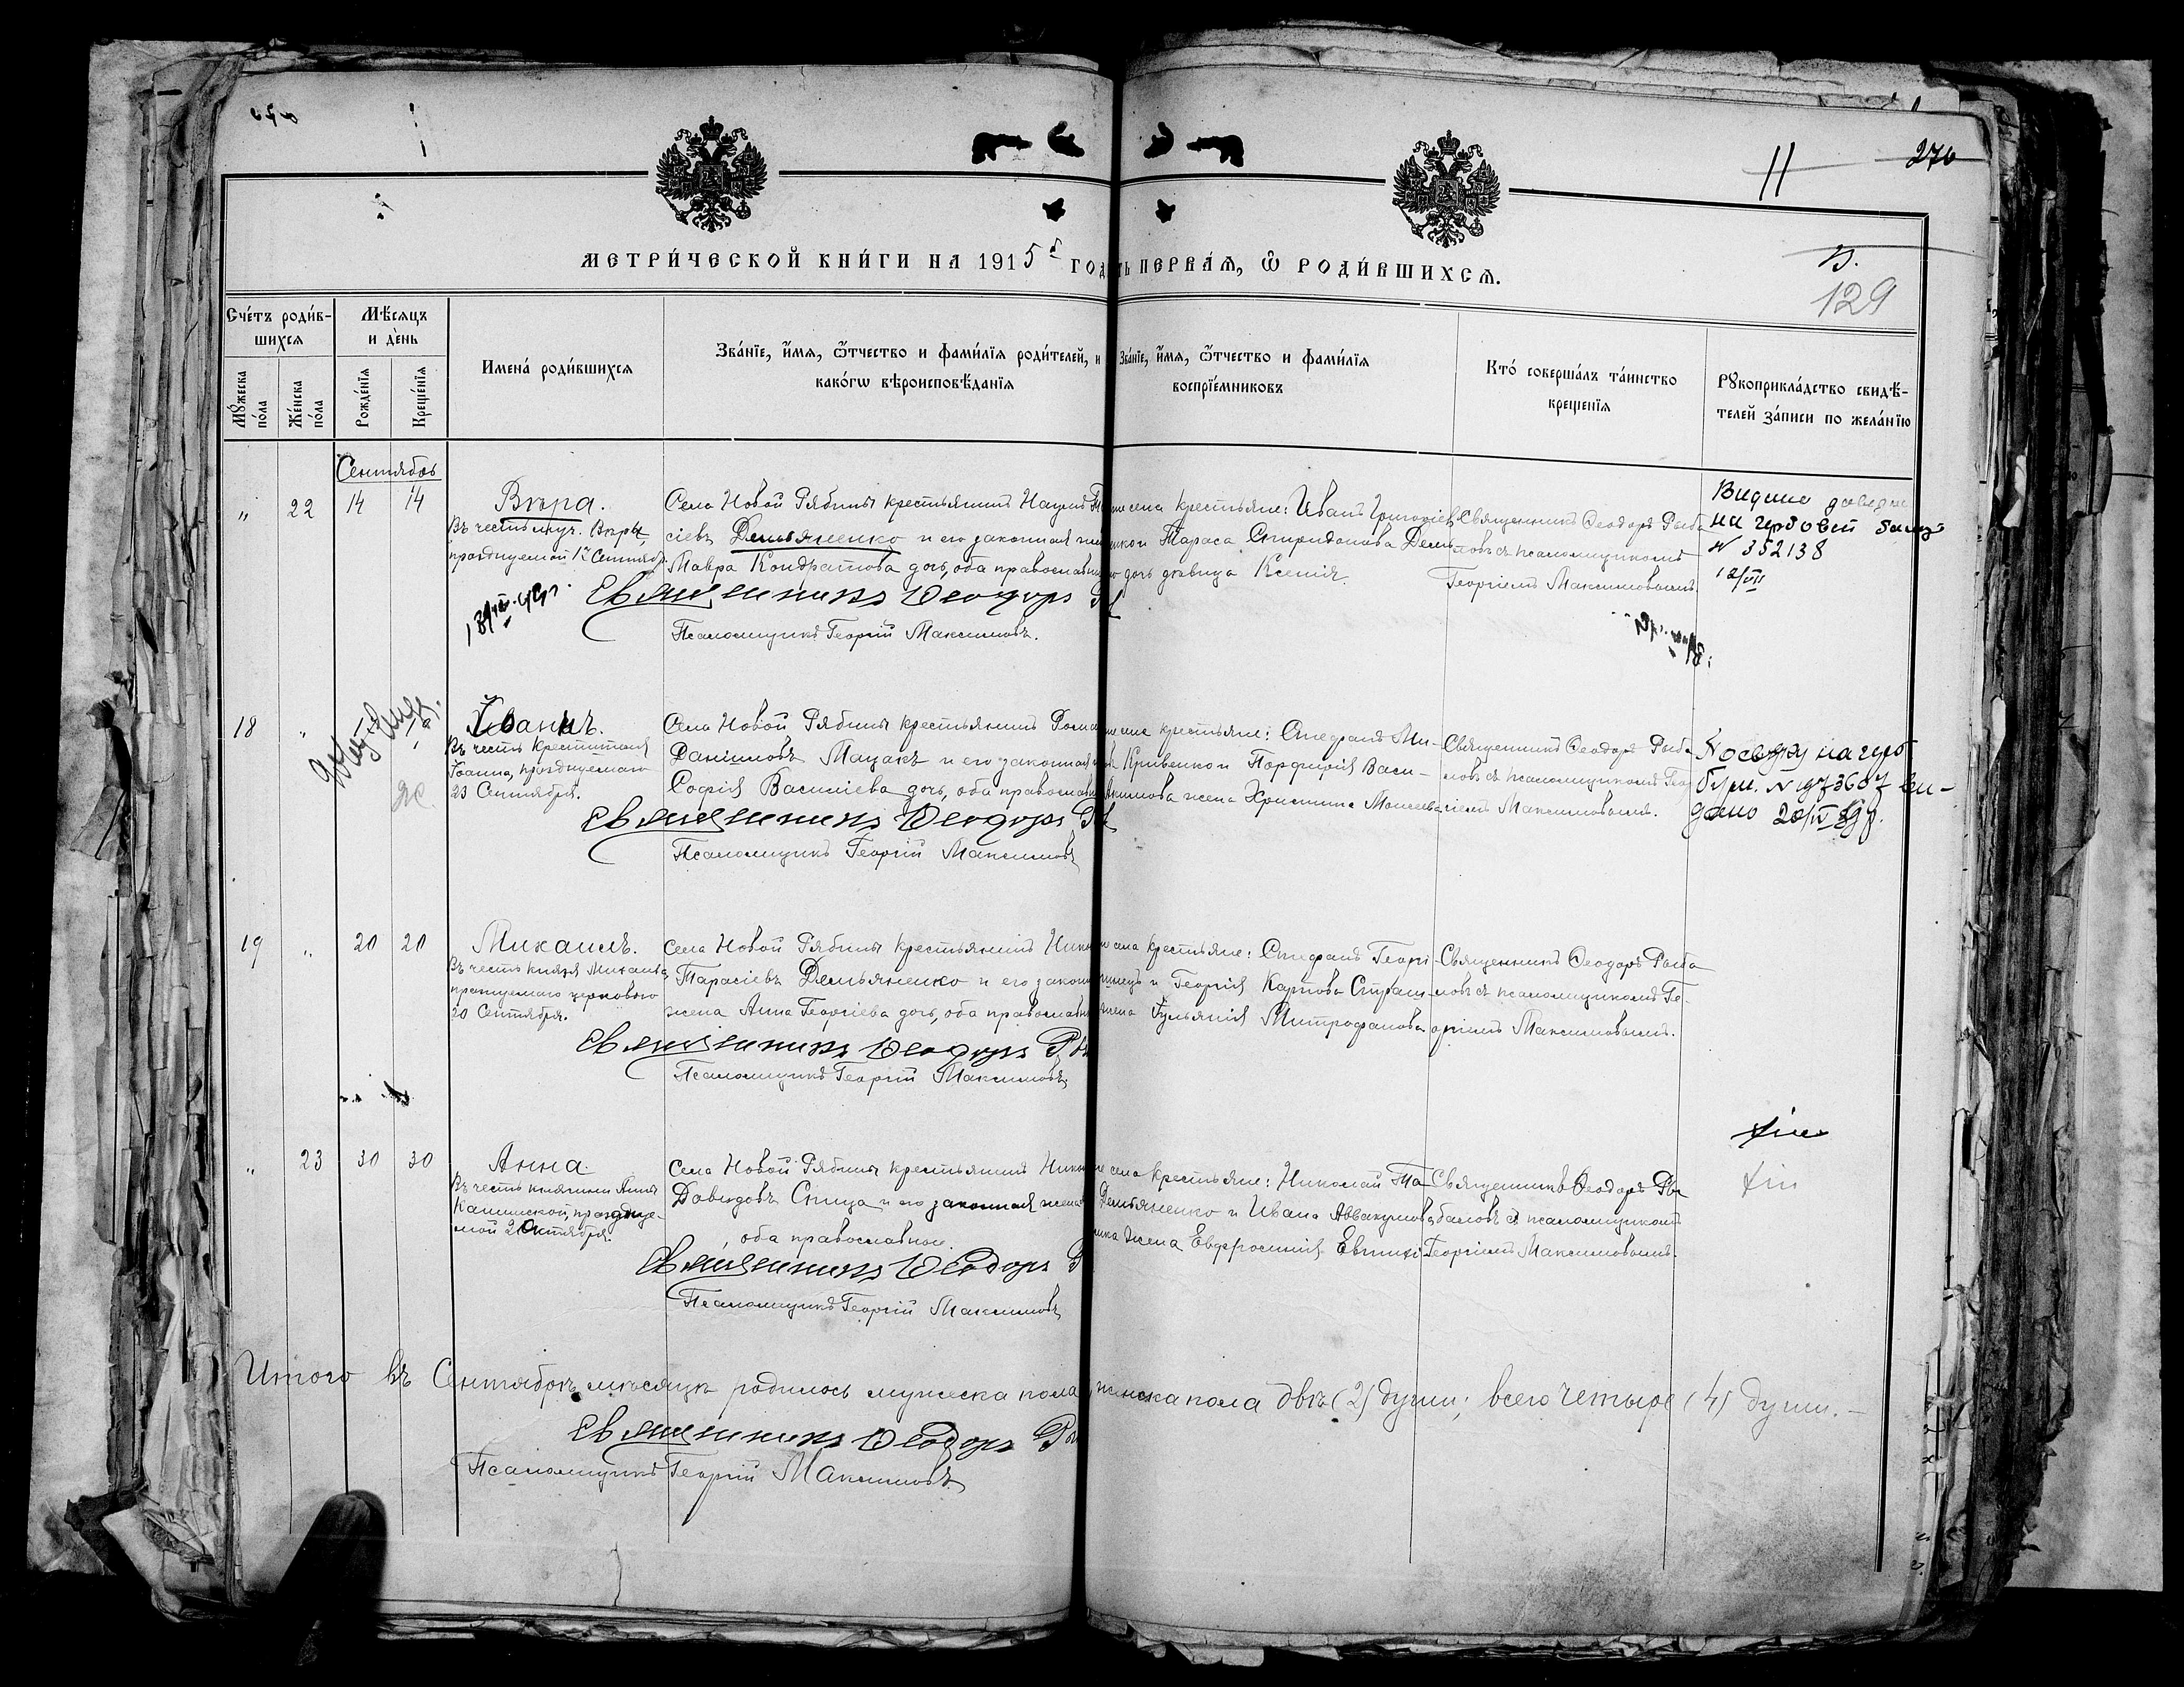 11
276
МЕТРИ́ЧЕСКОЙ КНИ́ГИ НА 1915 ГОД
ТЬ ПЕРВА́Ѧ, Ѽ РОДИ́ВШИХСѦ.
В.
129
Сче́тъ роди́в-
шихсѧ
Мѣ́сѧцъ
и де́нь
Мꙋ́жеска по́ла
Же́нска по́ла
Рожде́нїѧ
Креще́нїѧ
Имена́ роди́вшихсѧ
Зва́нїе, и҆́мѧ, ѻ҆́тчество и фами́лїѧ роди́телей, и
како́гѡ вѣроисповѣ́данїѧ
Зва́нїе, и҆́мѧ, ѻ҆́тчество и фами́лїѧ
воспрїе́мниковъ
Кто̀ соверша́лъ та́инство
креще́нїѧ
Рꙋкоприкла́дство свидѣ́-
телей за́писи по жела́нїю
Сентябрь
" 22 14 14
Вѣра.
Въ честь муч. Вѣры
празднуемой 17 Сентябр.
Села Новой Рябины крестьянинъ Наумъ
сіевъ Демьяненко и его законная
Мавра Кондратова дочь, оба православны
Священникъ Ѳеодоръ
Псаломщикъ Георгій Максимовъ.
села крестьяне: Иванъ Григоріев
Тараса Спиридонова Демь
дочь дѣвица Ксенія.
Священникъ Ѳеодоръ Рыба
ловъ съ псаломщикомъ
Георгіемъ Максимовымъ.
Видано
на гербовой
N 352138
12/VII
18 "
Іоаннъ.
Въ честь Крестителя
Іоанна, празднуемаго
23 Сентября.
Села Новой Рябины крестьянинъ Рома
Даніиловъ Мацакъ и его законная
Софія Василіева дочь, оба православны
Священникъ Ѳеодоръ
Псаломщикъ Георгій Максимовъ
села крестьяне: Стефанъ Ми-
Кривенко и Порфирія Васи-
Акимова жена Христина Моисеева
Священникъ Ѳеодоръ Рыба
ловъ съ псаломщикомъ Геор
гіемъ Максимовымъ.
на герб
бум. N 1973607 ви-
дано 20/IV
19 " 20 20
Михаилъ.
Въ честь князя Михаила,
празнуемаго церковью
20 Сентября.
Села Новой Рябины крестьянинъ Нико
Тарасіевъ Демьяненко и его закон
жена Анна Георгіева дочь, оба православны
Священникъ Ѳеодоръ Ры
Псаломщикъ Георгій Максимовъ
села крестьяне: Стефанъ Георгі-
и Георгія Карпова
жена Гульянія Митрофанова
Священникъ Ѳеодоръ Рыба
ловъ съ псаломщикомъ Ге-
оргіемъ Максимовымъ.
" 23 30 30
Анна.
Въ честь княгини Анны
Кашинской, празднуе-
мой 2 Октября.
Села Новой Рябины крестьянинъ Нико
Давидовъ Спица и его законная жена
, оба православные.
Священникъ Ѳеодоръ Р
Псаломщикъ Георгій Максимовъ
села крестьяне: Николай Та
Демьяненко и Ивана Аввакумова
жена Евфросинія
Священникъ Ѳеодоръ Ры
баловъ съ псаломщикомъ
Георгіемъ Максимовымъ.
Итого въ Сентябрѣ мѣсяцѣ родилось мужеска пола
женска пола двѣ (2) души; всего четыре (4) души. —
Священникъ Ѳеодоръ Ры
Псаломщикъ Георгій Максимовъ.